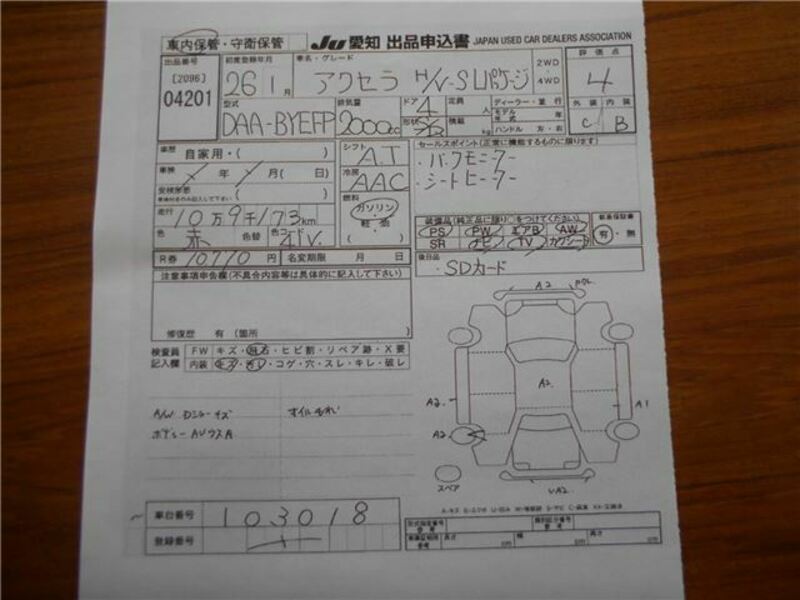 車内保管・守衛保管
JU 愛知 出品申込書 JAPAN USED CAR DEALERS ASSOCIATION
出品番号
[2096]
04201
初度登録年月
26 1月
車名・グレード
アクセラ H/V-S Lパッケージ
2WD・4WD
評価点
4
外装 内装
C B
型式
DAA-BYEFP
排気量
2000cc
ドア 4
形状
定員 人
積載 kg
ディーラー・並行
モデル年 年
ハンドル 左・右
車歴 自家用・( )
車検 年 月( 日)
走行 10万9千173km
色 赤 色替 色コード 41V
シフト A.T
冷房 AAC
燃料
ガソリン
軽油
セールスポイント(正常に機能するものに限ります)
・バックモニター
・シートヒーター
装備品(純正品に限り○をつけてください)
PS PW エアB AW
SR ナビ TV カワシート
新車保証書
有・無
R券 10,770円 名変期限 月 日
後日品
・SDカード
注意事項申告欄(不具合内容等は具体的に記入して下さい)
修復歴 有 (箇所
検査員記入欄
FW キズ・飛石・ヒビ割・リペア跡・X要
内装 キズ・ヨゴレ・コゲ・穴・スレ・キレ・破レ
A/W Dシューキズ オイルもれ
ボディーAUウスA
A2
A2
A2
A1
A2
スペア
車台番号 103018
登録番号
型式指定番号
類別区分番号
長さ cm 幅 cm 高さ cm